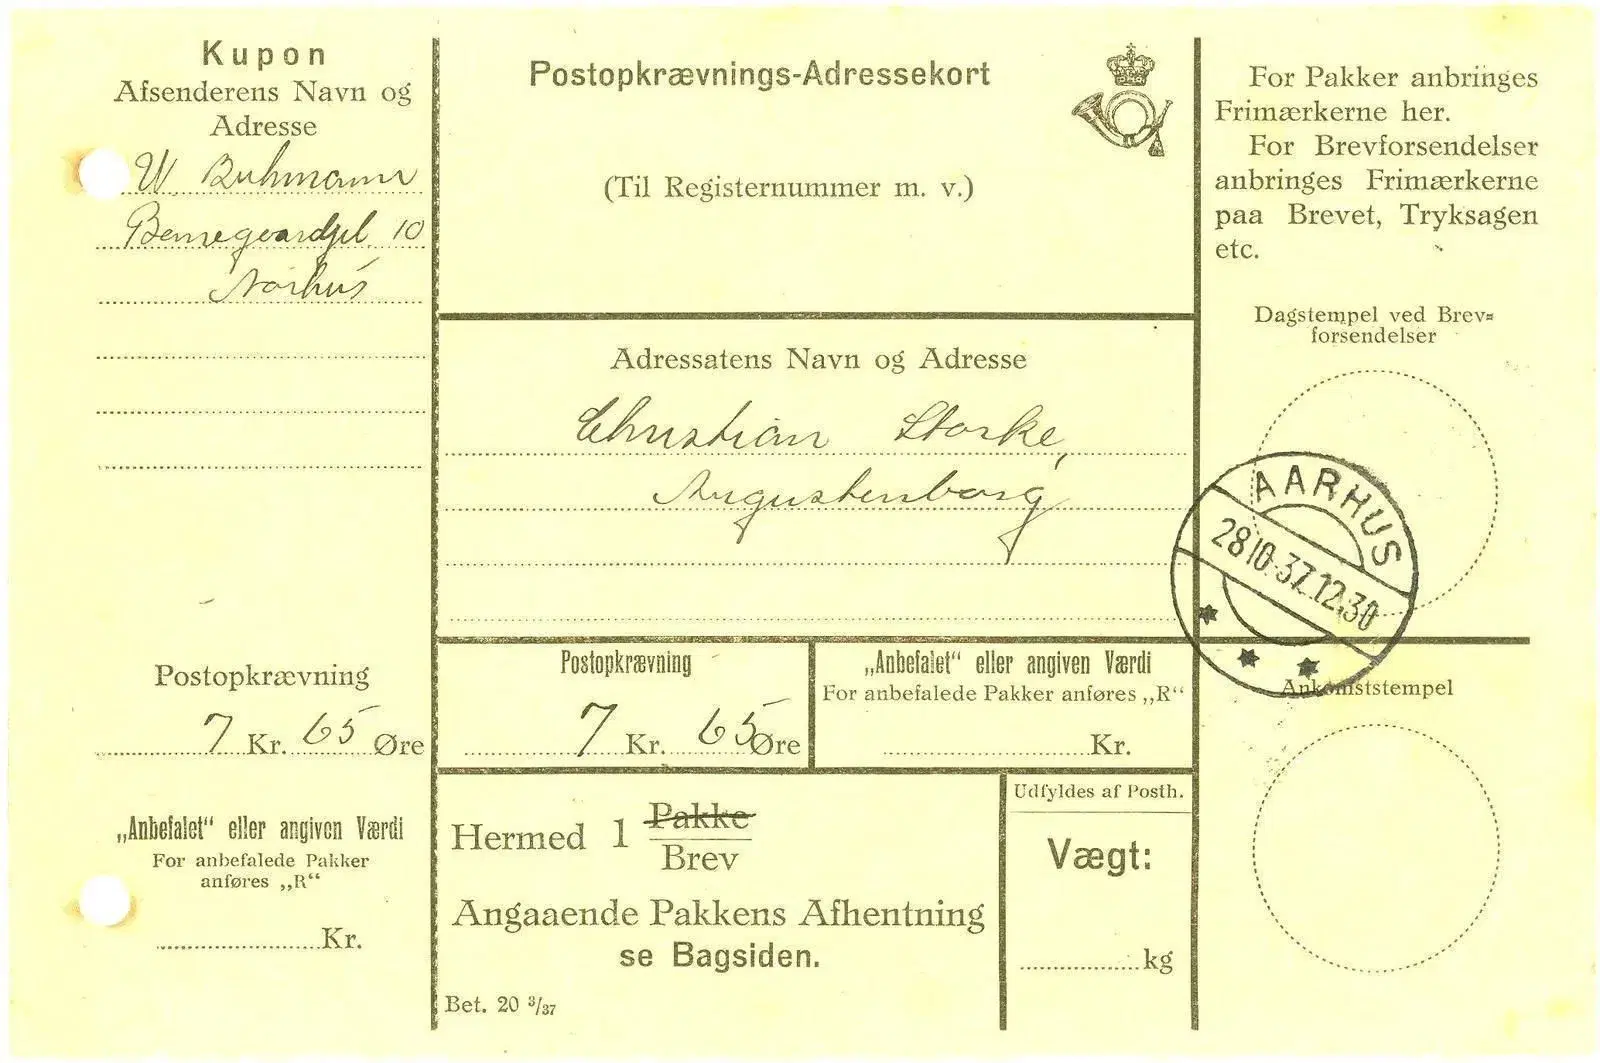 Kupon
Afsenderens Navn og
Adresse
W. Buhmann
10
Aarhus
Postopkrævning
7 Kr. 65 Øre
„Anbefalet“ eller angiven Værdi
For anbefalede Pakker
anføres „R“
Kr.
Postopkrævnings-Adressekort
(Til Registernummer m. v.)
Adressatens Navn og Adresse
Christian Storke,
Augustenborg
Postopkrævning
7 Kr. 65 Øre
„Anbefalet“ eller angiven Værdi
For anbefalede Pakker anføres „R“
Kr.
Hermed 1 Pakke
Brev
Angaaende Pakkens Afhentning
se Bagsiden.
Bet. 20 3/37
Udfyldes af Posth.
Vægt:
kg
For Pakker anbringes
Frimærkerne her.
For Brevforsendelser
anbringes Frimærkerne
paa Brevet, Tryksagen
etc.
Dagstempel ved Brev-
forsendelser
AARHUS
28 10.37.12,30
Ankomststempel